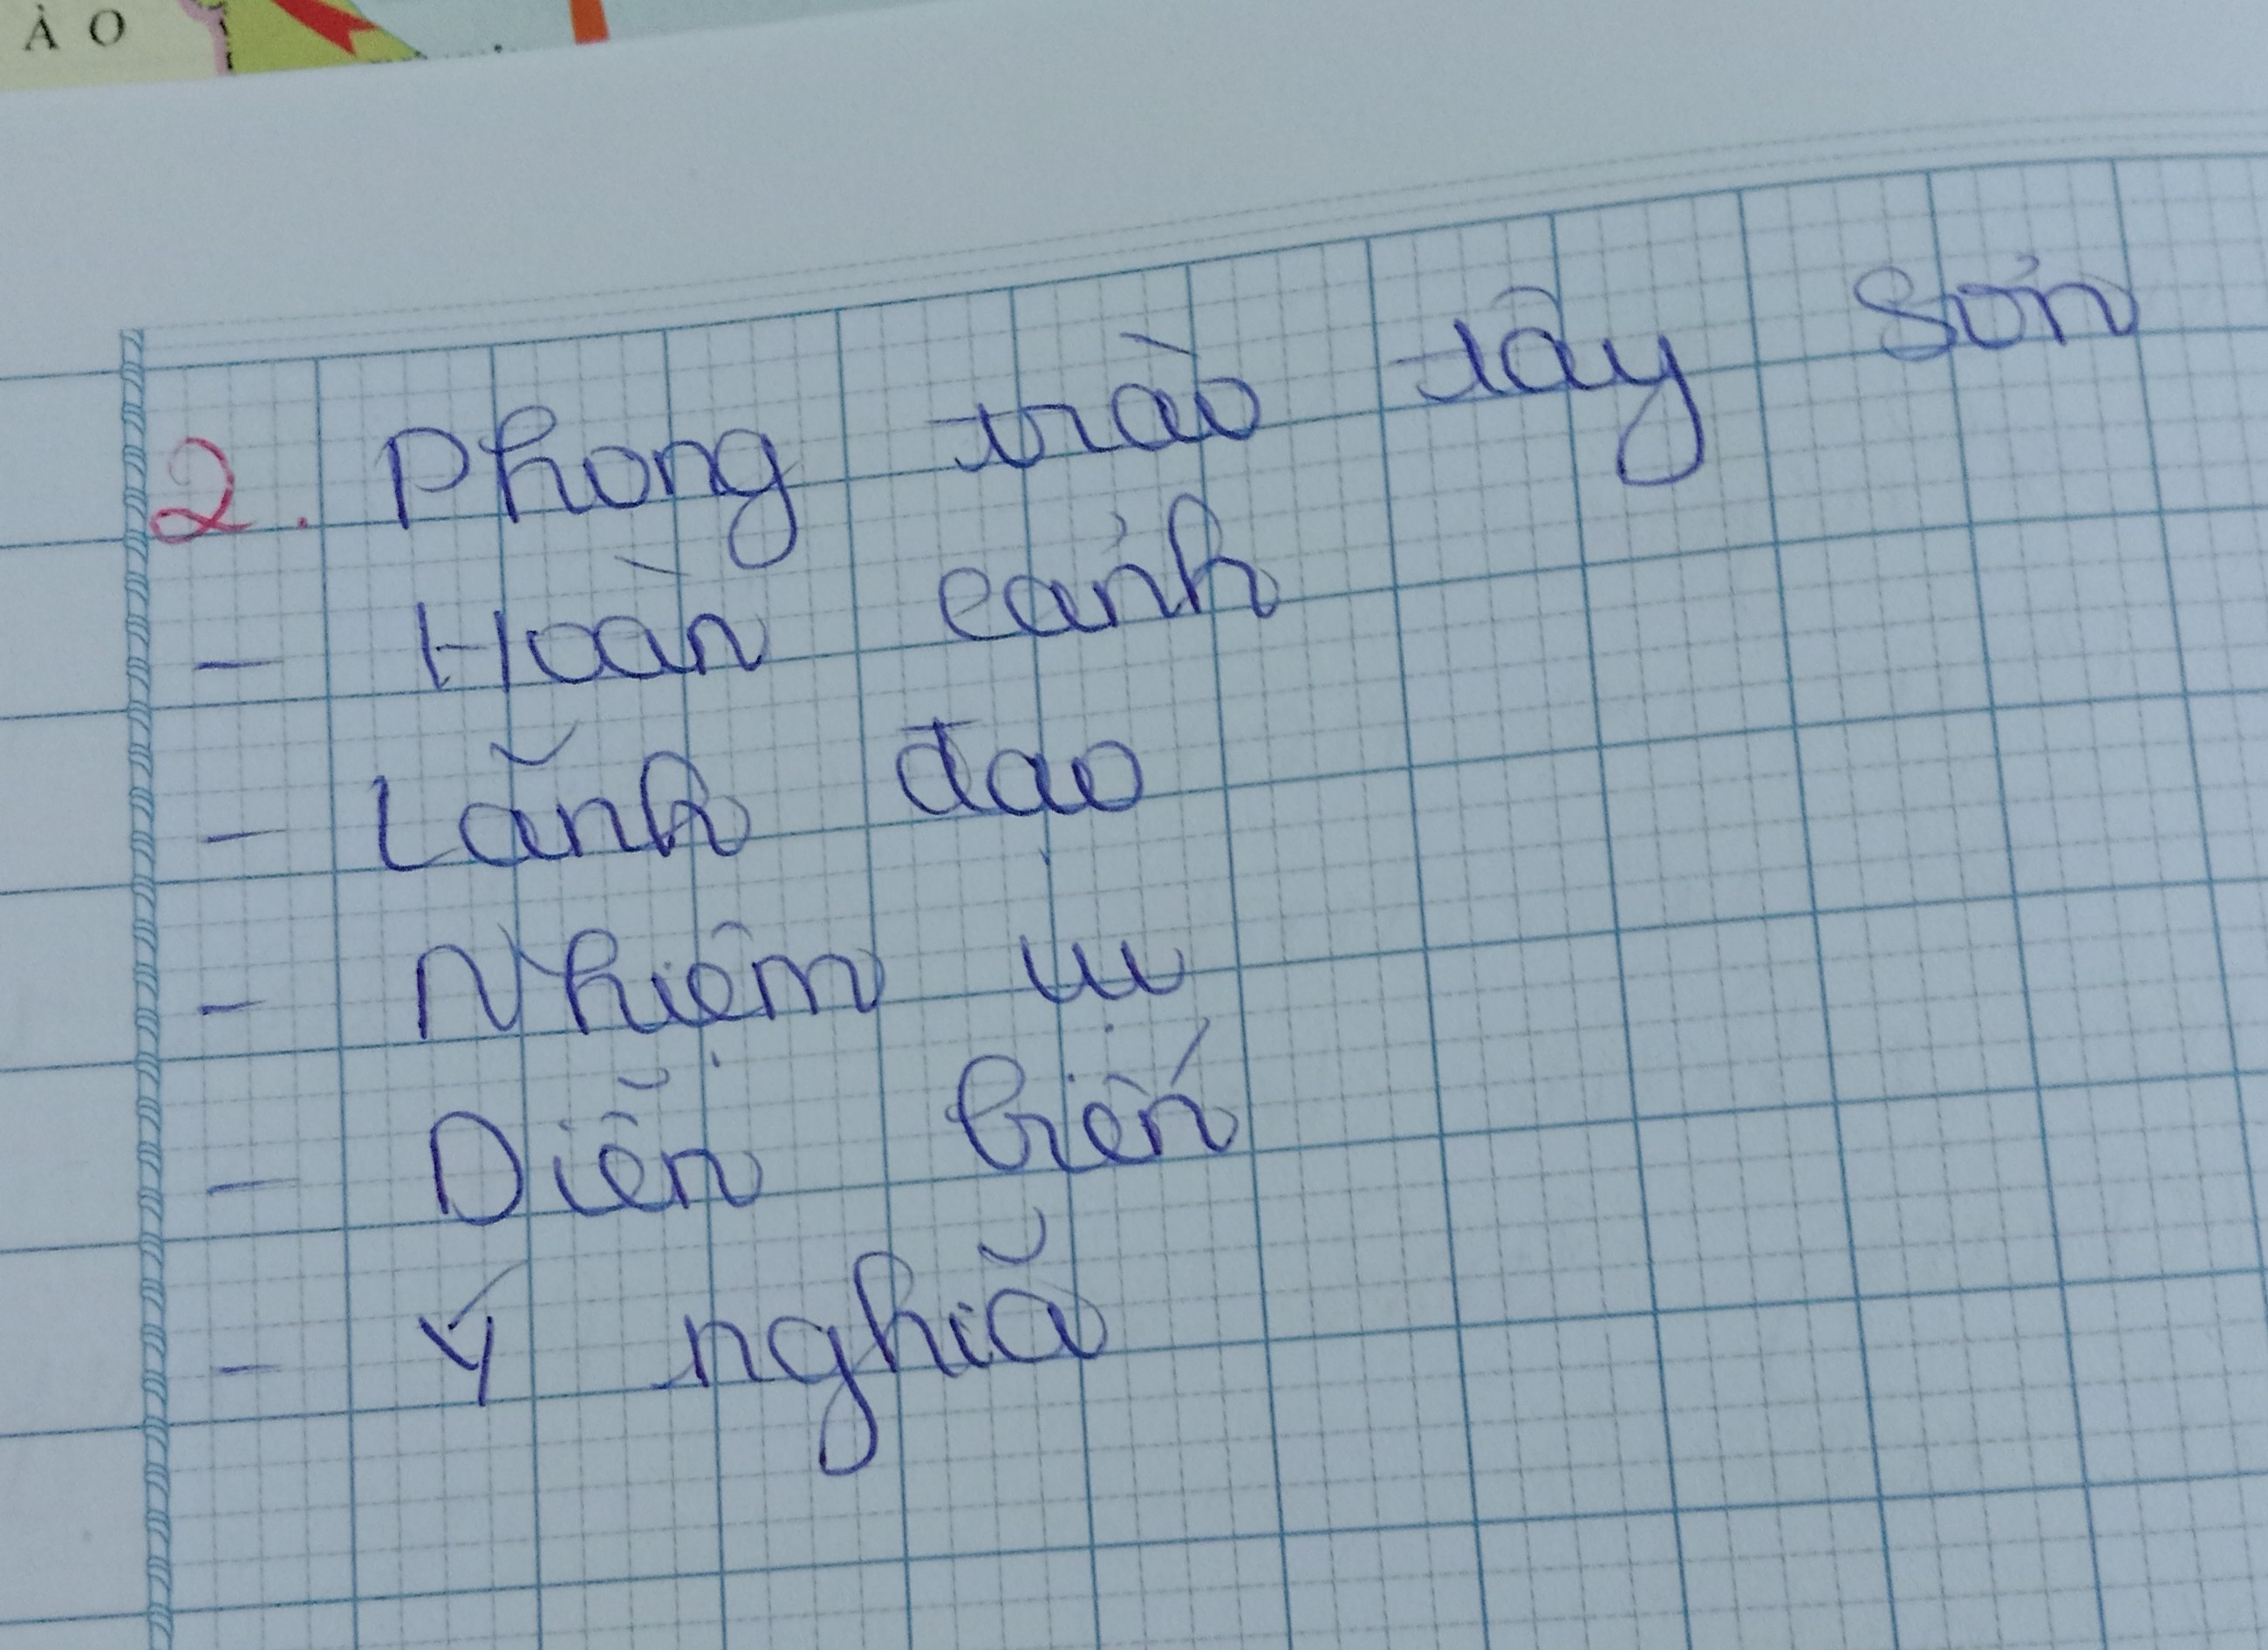 ÀO
2. Phong trào tây Sơn
- Hoàn cảnh
- Lãnh đạo
- Nhiệm vụ
- Diễn biến
- Ý nghĩa